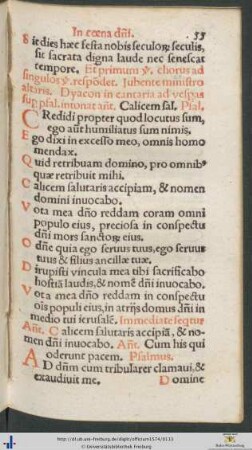 In cœna dn̄i. 33
Sit dies hæc festa nobis seculoꝝ seculis,
sit sacrata digna laude nec senescat
tempore. Et primum ℣. chorus ad
singulos ℣. respōdet. Iubente ministro
altaris. Dyacon in cantaria ad vesperas
sup psal. intonat añt. Calicem sal. Psal.
CRedidi propter quod locutus sum,
ego aūt humiliatus sum nimis.
Ego dixi in excessu meo, omnis homo
mendax.
Quid retribuam domino, pro omnibꝰ
quæ retribuit mihi.
Calicem salutaris accipiam, & nomen
domini inuocabo.
Vota mea dn̄o reddam coram omni
populo eius, preciosa in conspectu
dn̄i mors sanctoꝝ eius.
O dn̄e quia ego seruus tuus, ego seruus
tuus & filius ancillæ tuæ.
Dirupisti vincula mea tibi sacrificabo
hostiā laudis, & nomē dn̄i inuocabo.
Vota mea dn̄o reddam in conspectu
ois populi eius, in atrijs domus dn̄i in
medio tui ierusalē. Immediate seqtur
Añt. Calicem salutaris accipiā, & no-
men dn̄i inuocabo. Añt. Cum his qui
oderunt pacem. Psalmus.
AD dn̄m cum tribularer clamaui, &
exaudiuit me. Domine
http://dl.ub.uni-freiburg.de/diglit/officium1574/0113
© Universitätsbibliothek Freiburg